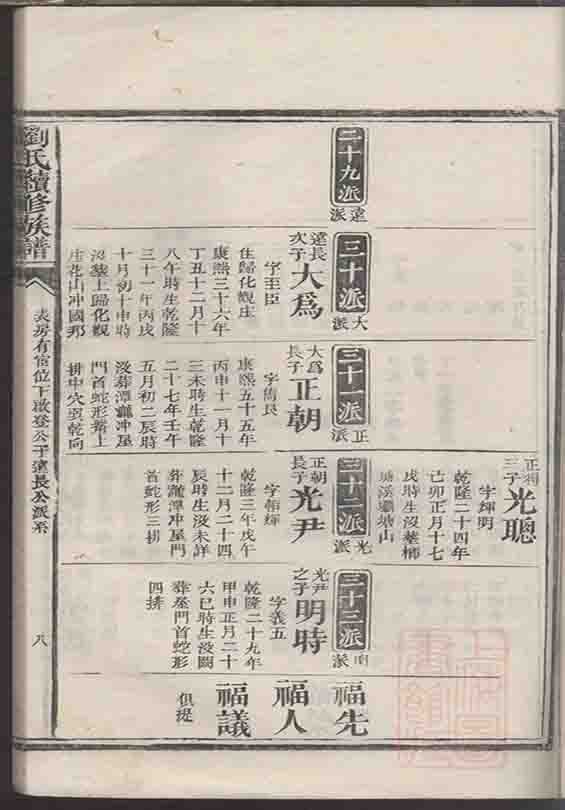 二十九派
遠派
三十派
大派
遠長
次子
大為
字至臣
住歸化觀庄
康熙三十六年
丁丑十二月十
八午時生乾隆
三十一年丙戌
十月初十申時
沒墓上歸化觀
庄花山冲國那
三十一派
正派
大為
長子
正朝
字雋良
康熙五十五年
丙申十一月十
三未時生乾隆
二十七年壬午
五月初二辰時
沒葬潭冲屋
門首蛇形嘴上
排中穴巽乾向
正相
三子
光聰
字輝明
乾隆二十四年
己卯正月十七
戌時生沒墓
溪塘山
三十二派
光派
正朝
長子
光尹
字朝輝
乾隆三年戊午
十二月二十四
辰時生沒未詳
葬潭冲屋門
首蛇形三排
三十三派
明派
光尹
之子
明時
字義五
乾隆二十九年
甲申正月二十
六巳時生沒闕
葬屋門首蛇形
四排
福先
福人
福議
但提
劉氏續修族譜
房有富位下啟登公子遠長公派系
八